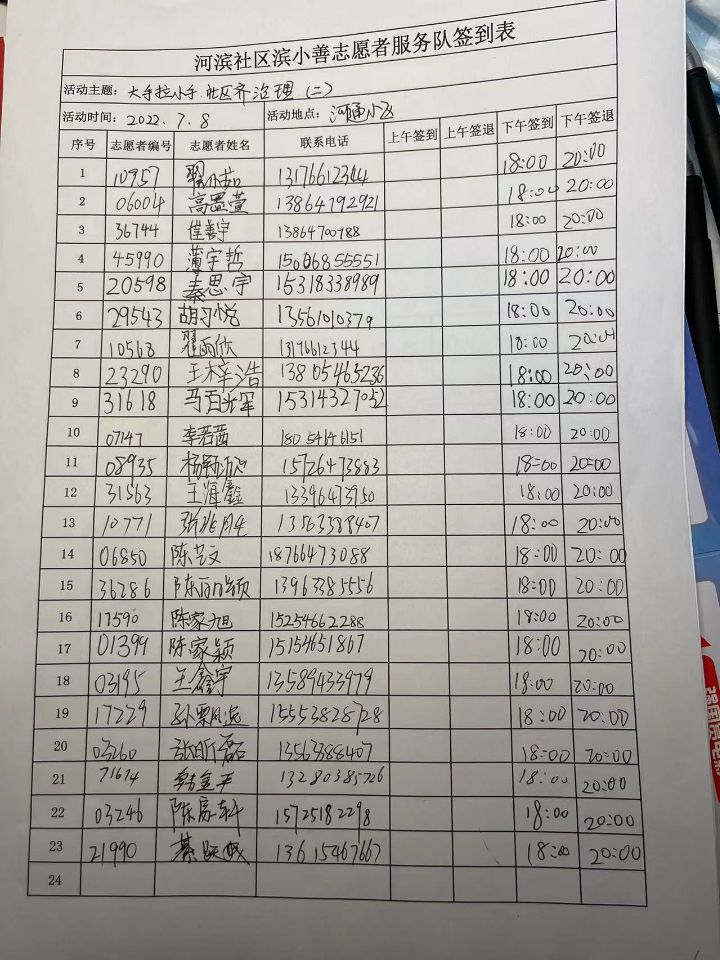 河滨社区滨小善志愿者服务队签到表
活动主题: 大手拉小手 社区齐治理 (二)
活动时间: 2022.7.8 活动地点: 河通小区
序号 志愿者编号 志愿者姓名 联系电话 上午签到 上午签退 下午签到 下午签退
1 10957 13176612344 18:00 20:00
2 06004 高墨萱 13864792921 18:00 20:00
3 36744 13864700788 18:00 20:00
4 45990 薄宇哲 15006855551 18:00 20:00
5 20598 秦思宇 15318338989 18:00 20:00
6 29543 胡习悦 13561010379 18:00 20:00
7 10568 翟雨欣 13176612344 18:00 20:00
8 23290 王梓浩 13805465236 18:00 20:00
9 31618 马百 15314327052 18:00 20:00
10 07147 李若茜 18054146151 18:00 20:00
11 08935 15726473883 18:00 20:00
12 31563 王海鑫 13396473950 18:00 20:00
13 10771 13563388407 18:00 20:00
14 06850 陈艺文 18766473088 18:00 20:00
15 36286 陈丽颖 13963385556 18:00 20:00
16 17590 陈家旭 15254662288 18:00 20:00
17 01399 陈家颖 15154651867 18:00 20:00
18 03195 王鑫宇 13589433979 18:00 20:00
19 17229 孙飘逸 15553828728 18:00 20:00
20 03260 张昕磊 13563388407 18:00 20:00
21 71674 韩金平 13280385726 18:00 20:00
22 03246 陈高轩 15725182298 18:00 20:00
23 21990 13615467667 18:00 20:00
24